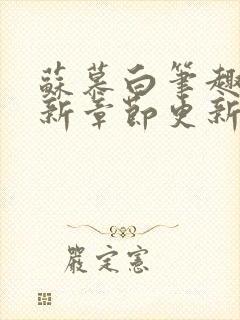 蘇慕白筆趣
新章節更新
嚴定憲